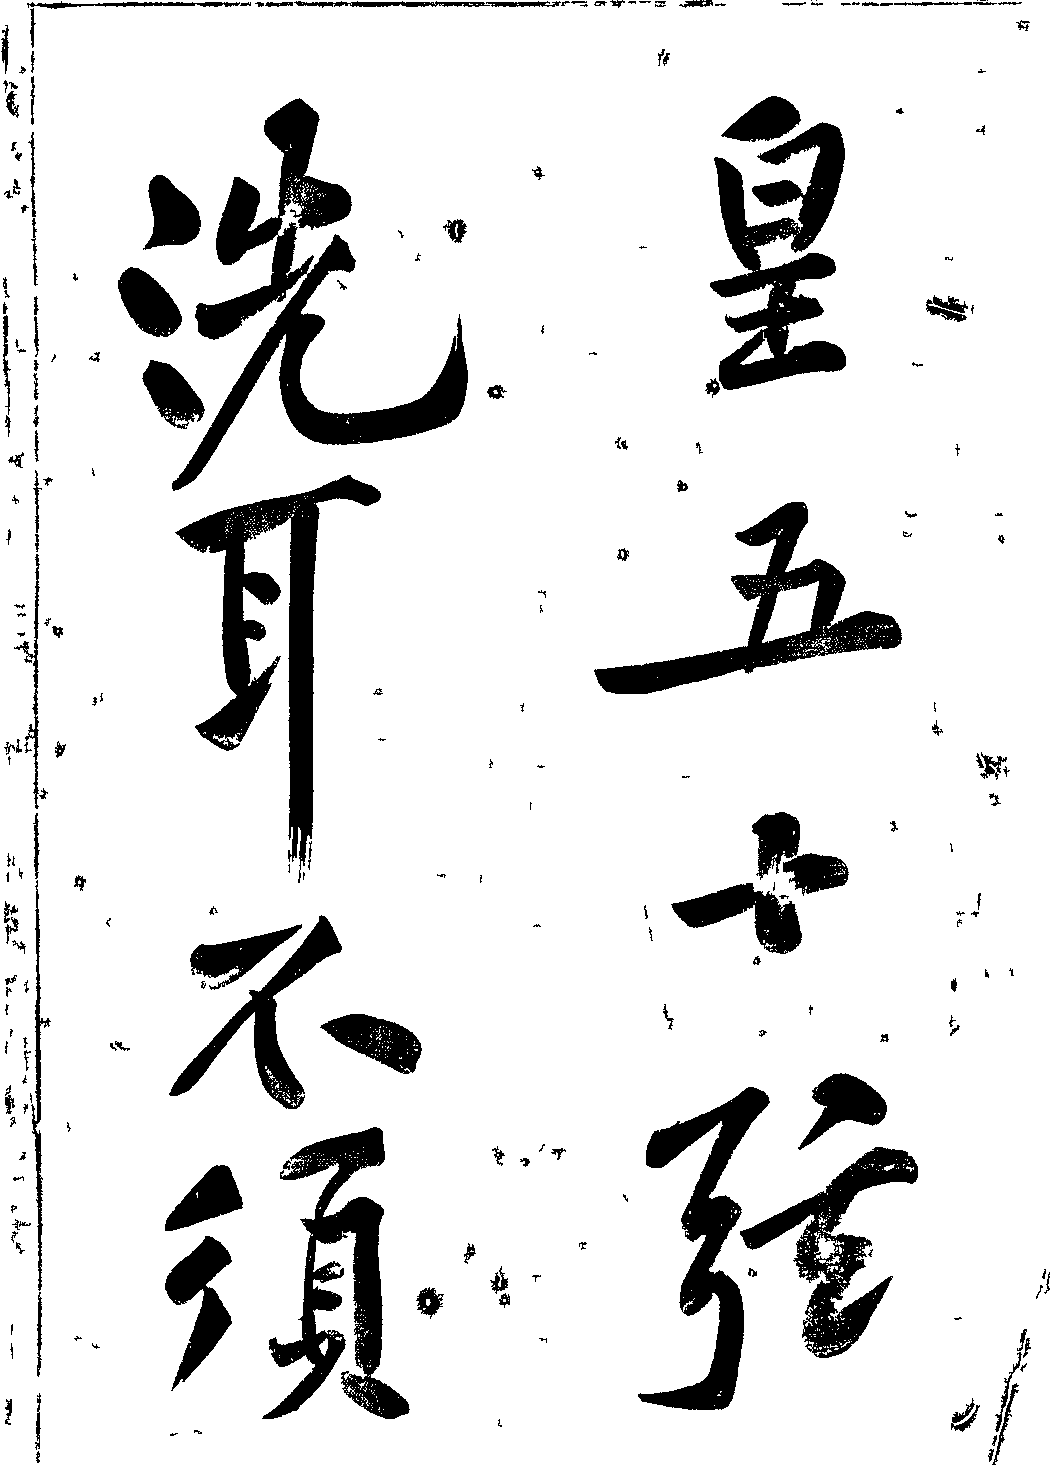 皇五十弦
洗耳不須